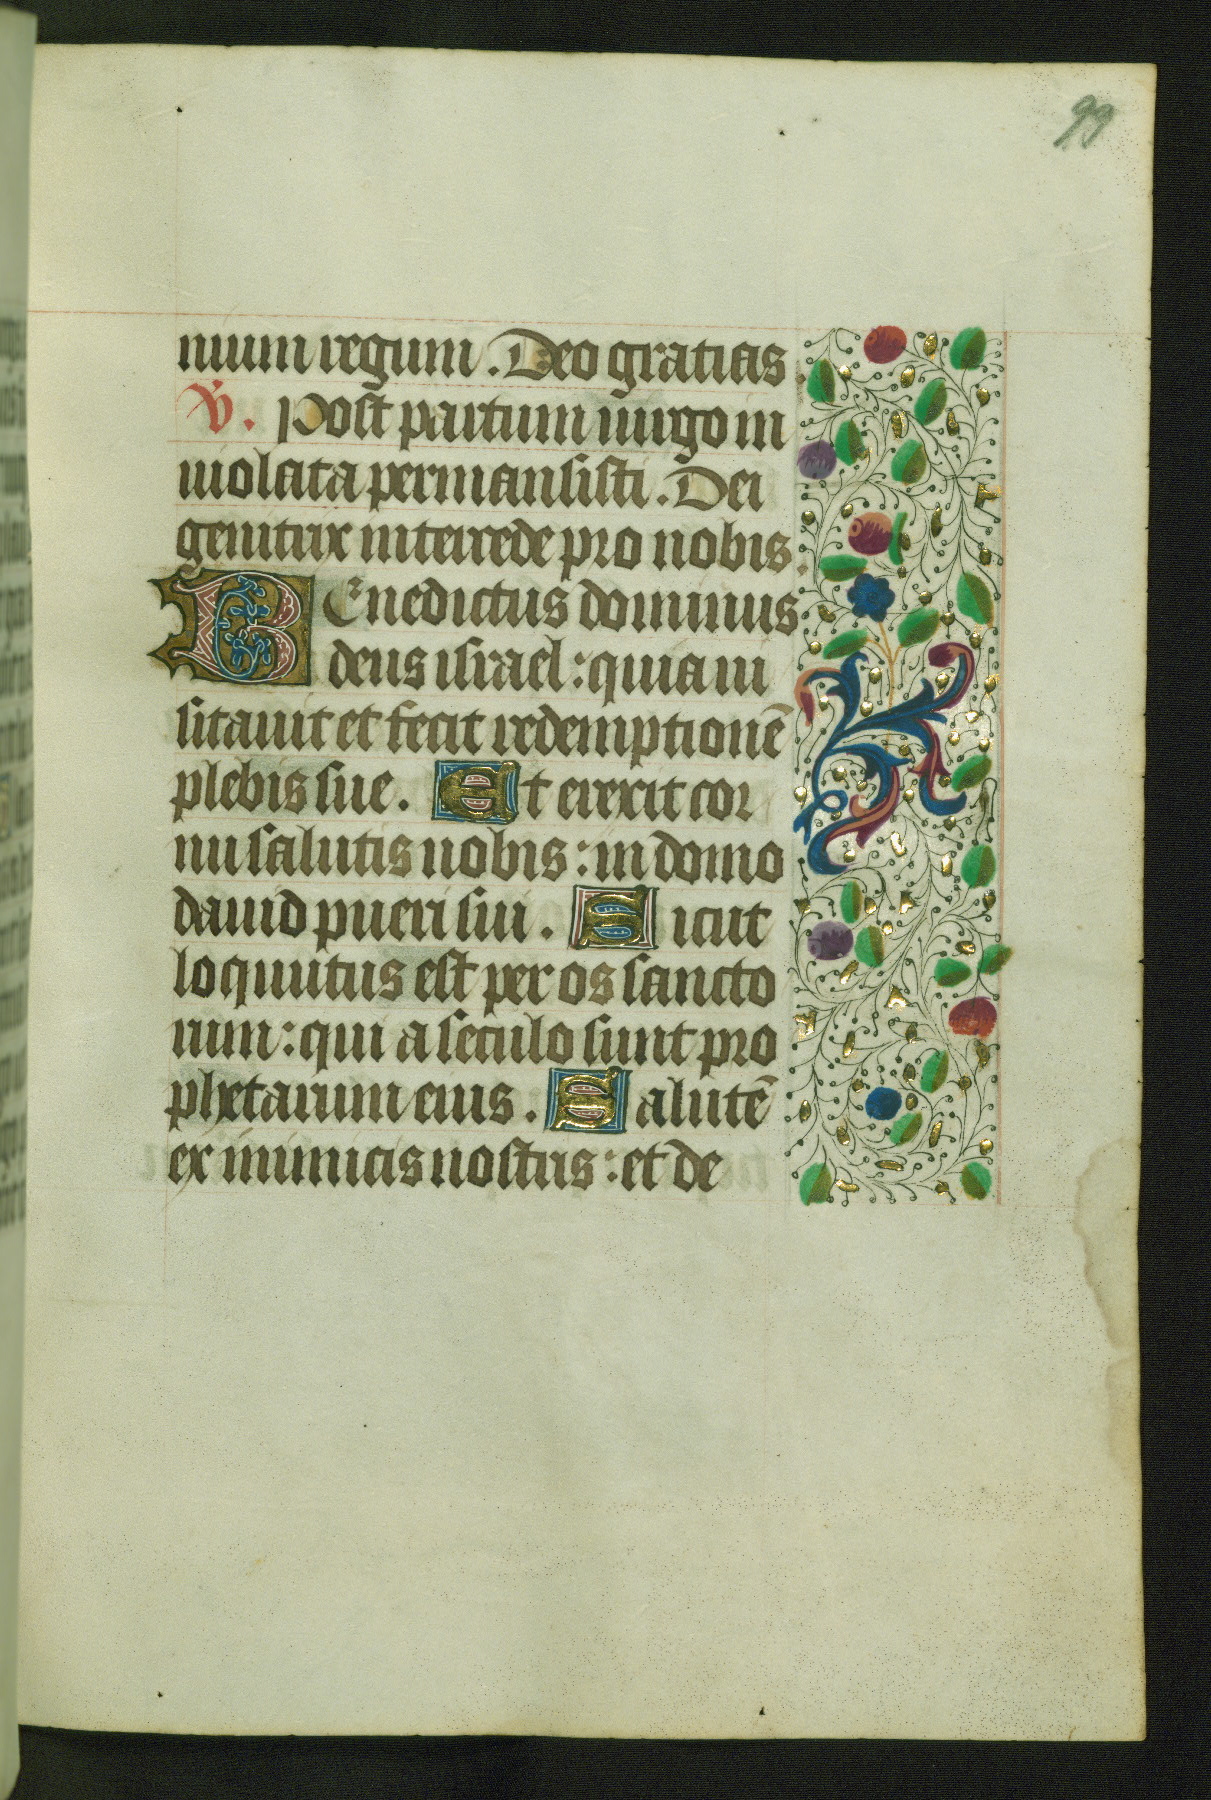 99
nium regum. Deo gratias.
V. Post partum uirgo in
uiolata permansisti. Dei
genitrix intercede pro nobis.
Benedictus dominus
deus israel: quia ui
sitauit et fecit redemptionē
plebis sue. Et erexit cor
nu salutis nobis: in domo
dauid pueri sui. Sicut
loquutus est per os sancto
rum: qui a seculo sunt pro
phetarum eius. Salutē
ex inimicis nostris: et de